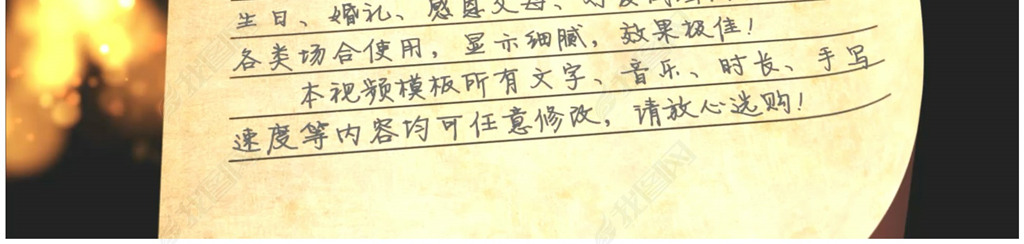 生日、婚礼、感恩父母、
各类场合使用，显示细腻，效果极佳！
本视频模板所有文字、音乐、时长、手写
速度等内容均可任意修改，请放心选购！
我图网